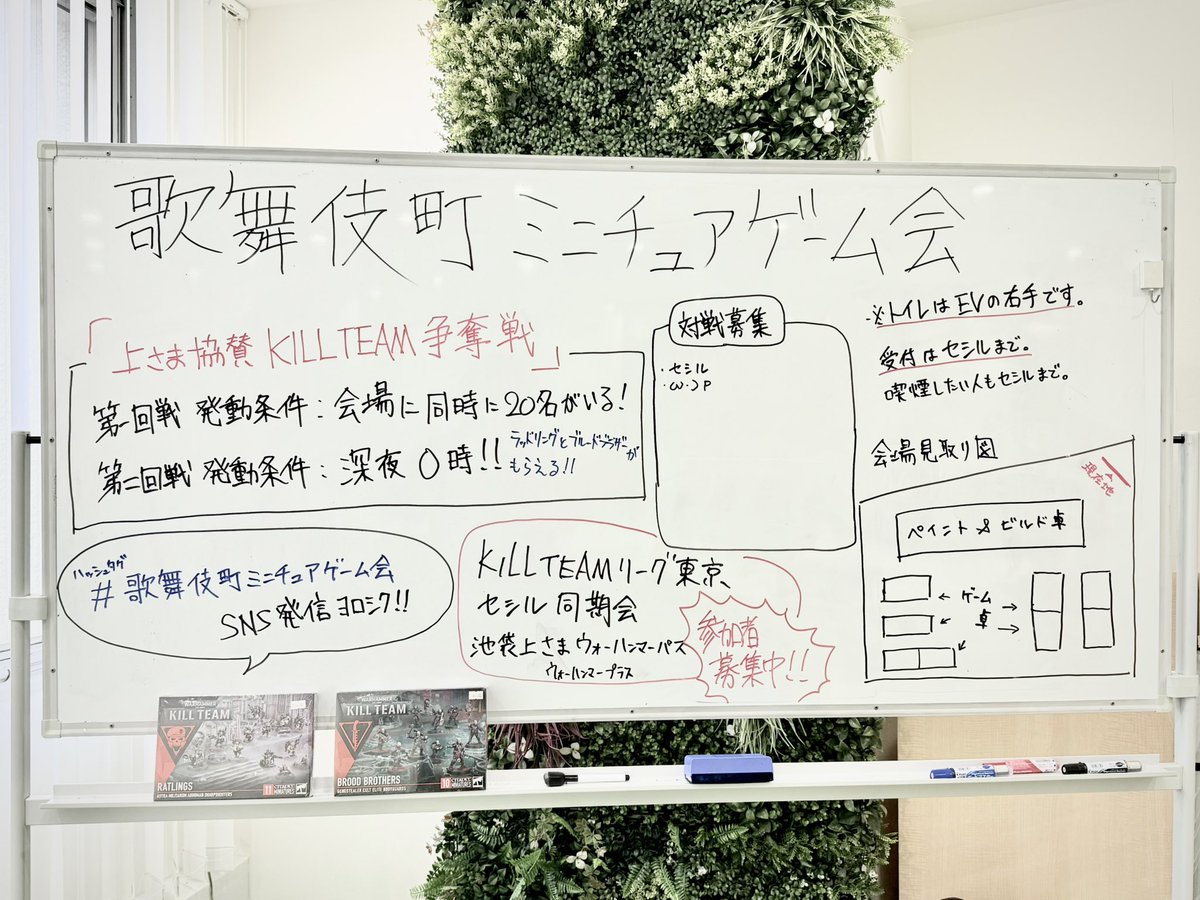 歌舞伎町ミニチュアゲーム会
「上さま協賛 KILLTEAM争奪戦」
第一回戦 発動条件：会場に同時に20名がいる！
第二回戦 発動条件：深夜0時！！
ラットリングとブルードブラザーが
もらえる！！
対戦募集
・セシル
・ω・)P
※トイレはEVの右手です。
受付はセシルまで。
喫煙したい人もセシルまで。
会場見取り図
現在地
ペイント&ビルド卓
← ゲーム →
← 卓 →
ハッシュタグ
#歌舞伎町ミニチュアゲーム会
SNS発信ヨロシク!!
KILLTEAMリーグ東京、
セシル同期会
池袋上さまウォーハンマーパス
ウォーハンマープラス
参加者
募集中!!
WARHAMMER
KILL TEAM
RATLINGS
ASTRA MILITARUM ABHUMAN SHARPSHOOTERS
11 CITADEL MINIATURES
WARHAMMER
KILL TEAM
BROOD BROTHERS
GENESTEALER CULT ELITE BODYGUARDS
10 CITADEL MINIATURES